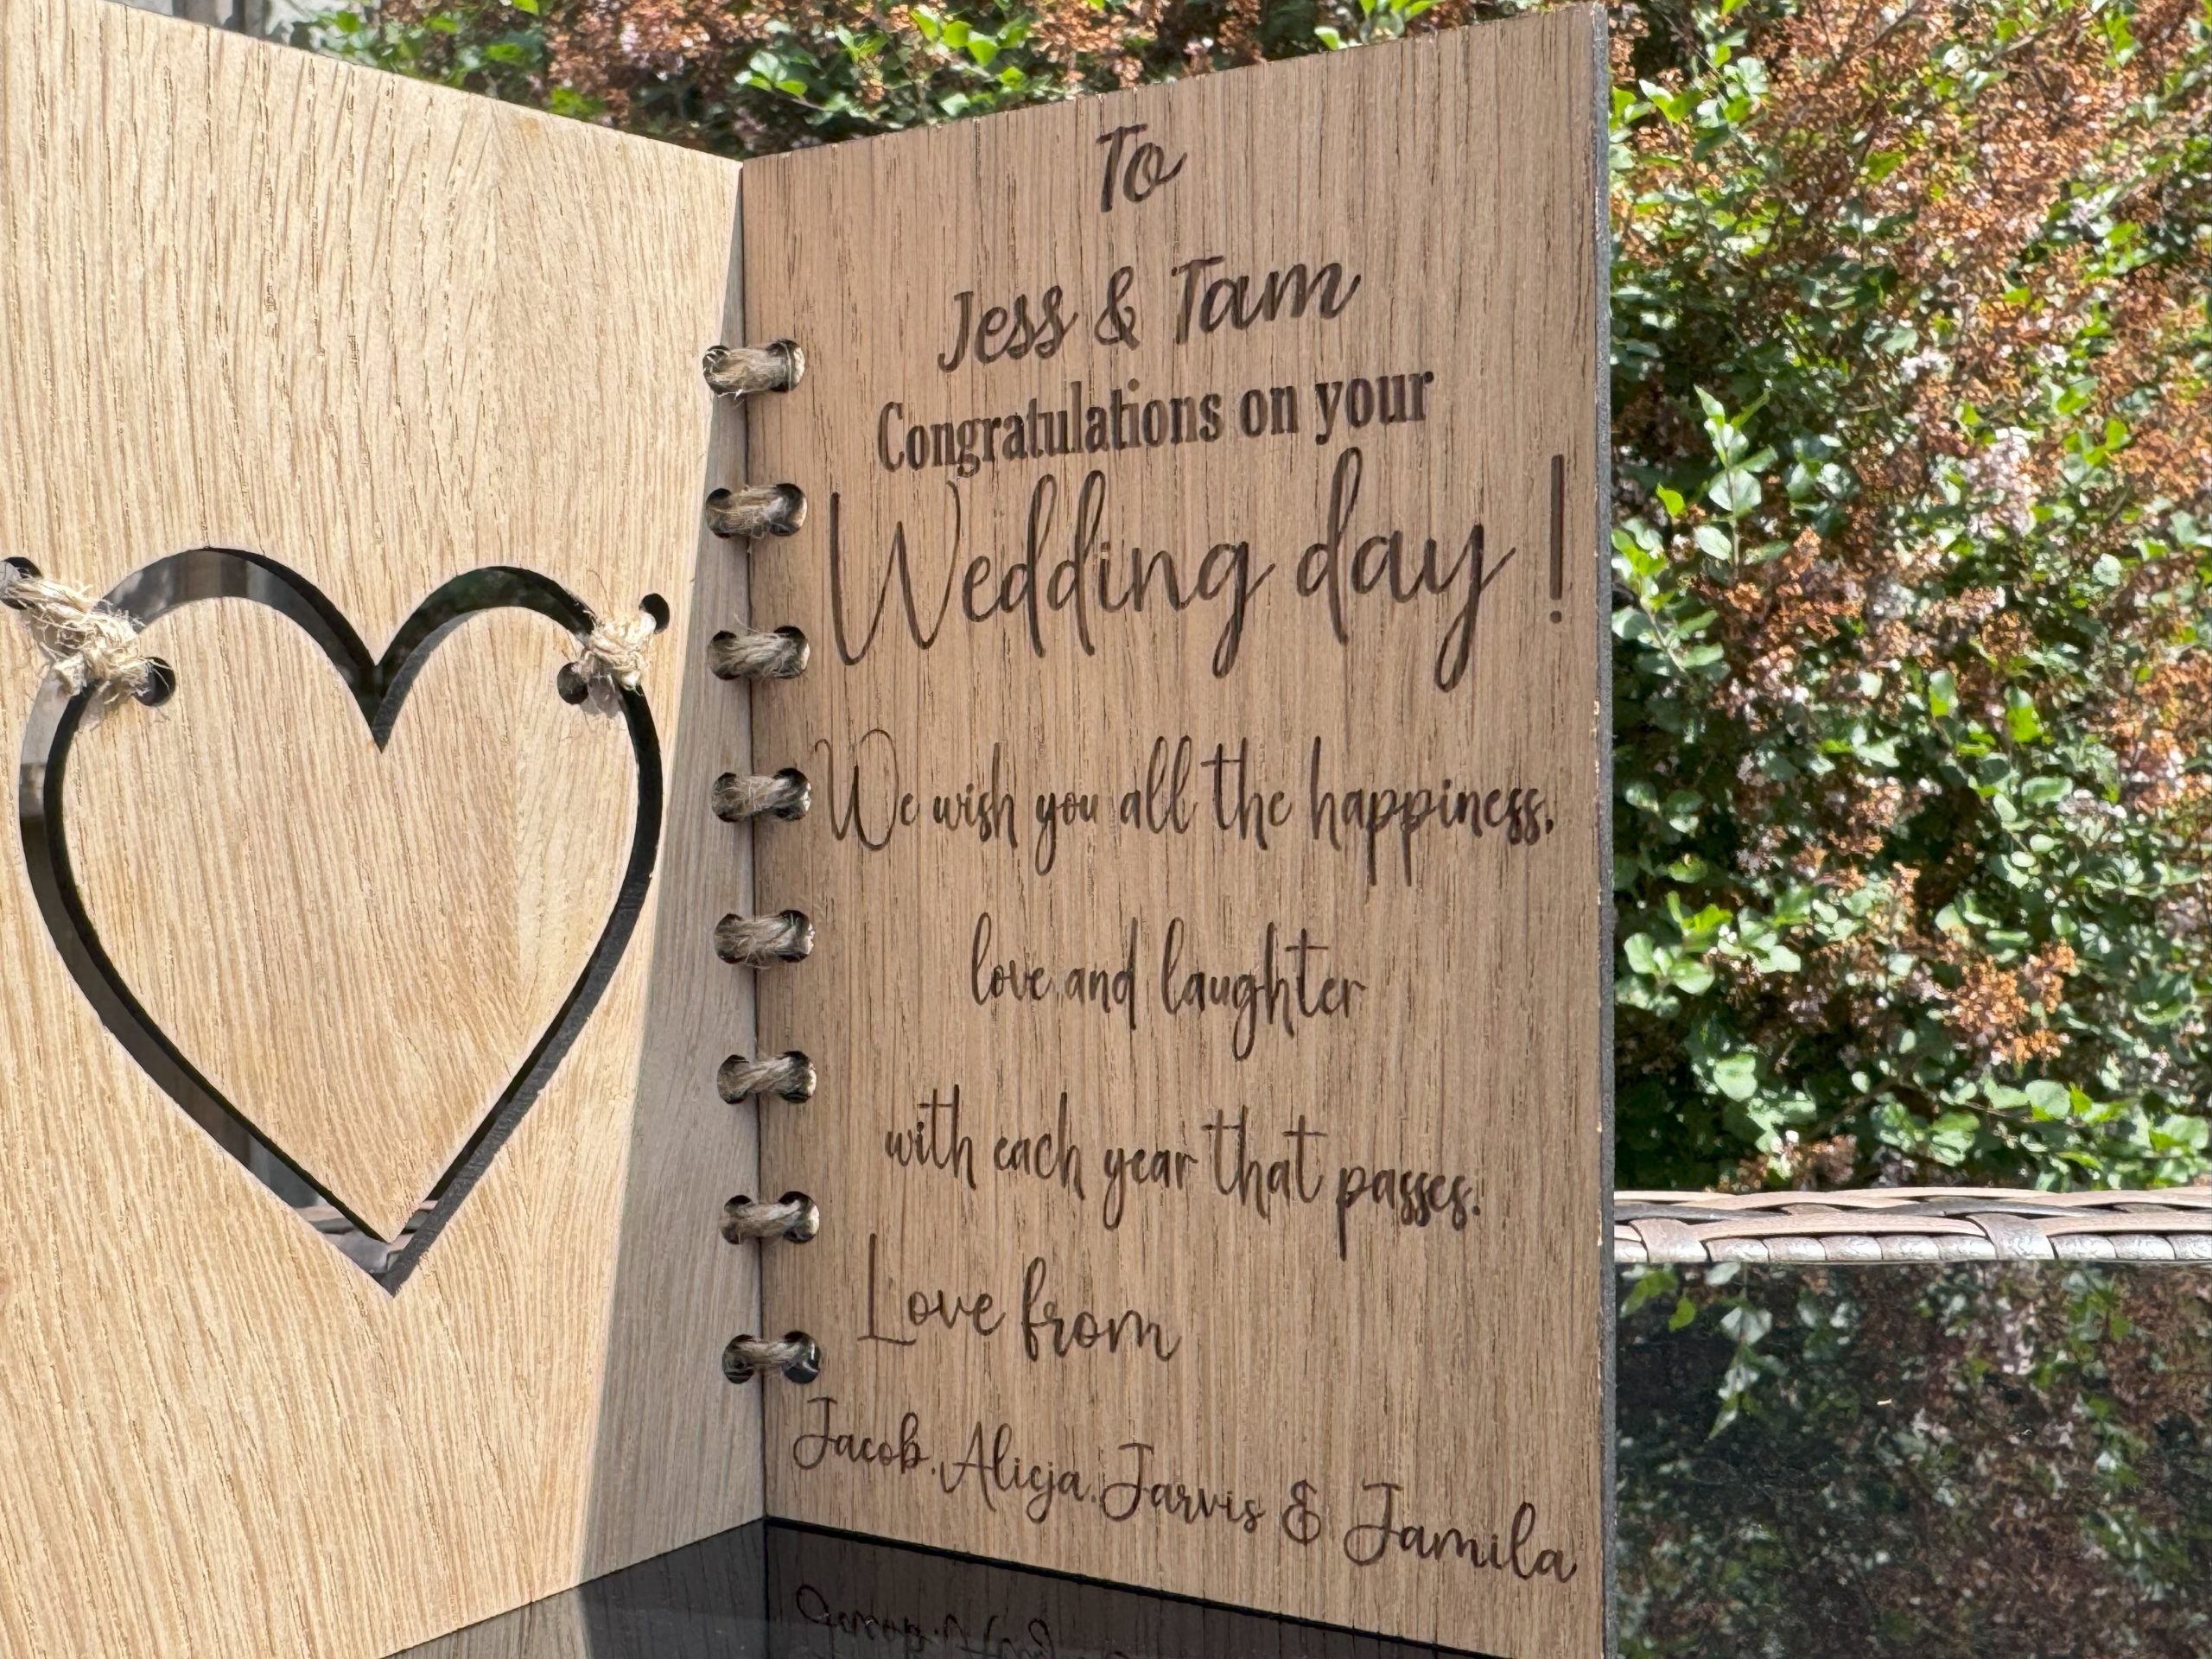 To
Jess & Tam
Congratulations on your
Wedding day !
We wish you all the happiness,
love and laughter
with each year that passes.
Love from
Jacob, Alicja, Jarvis & Jamila